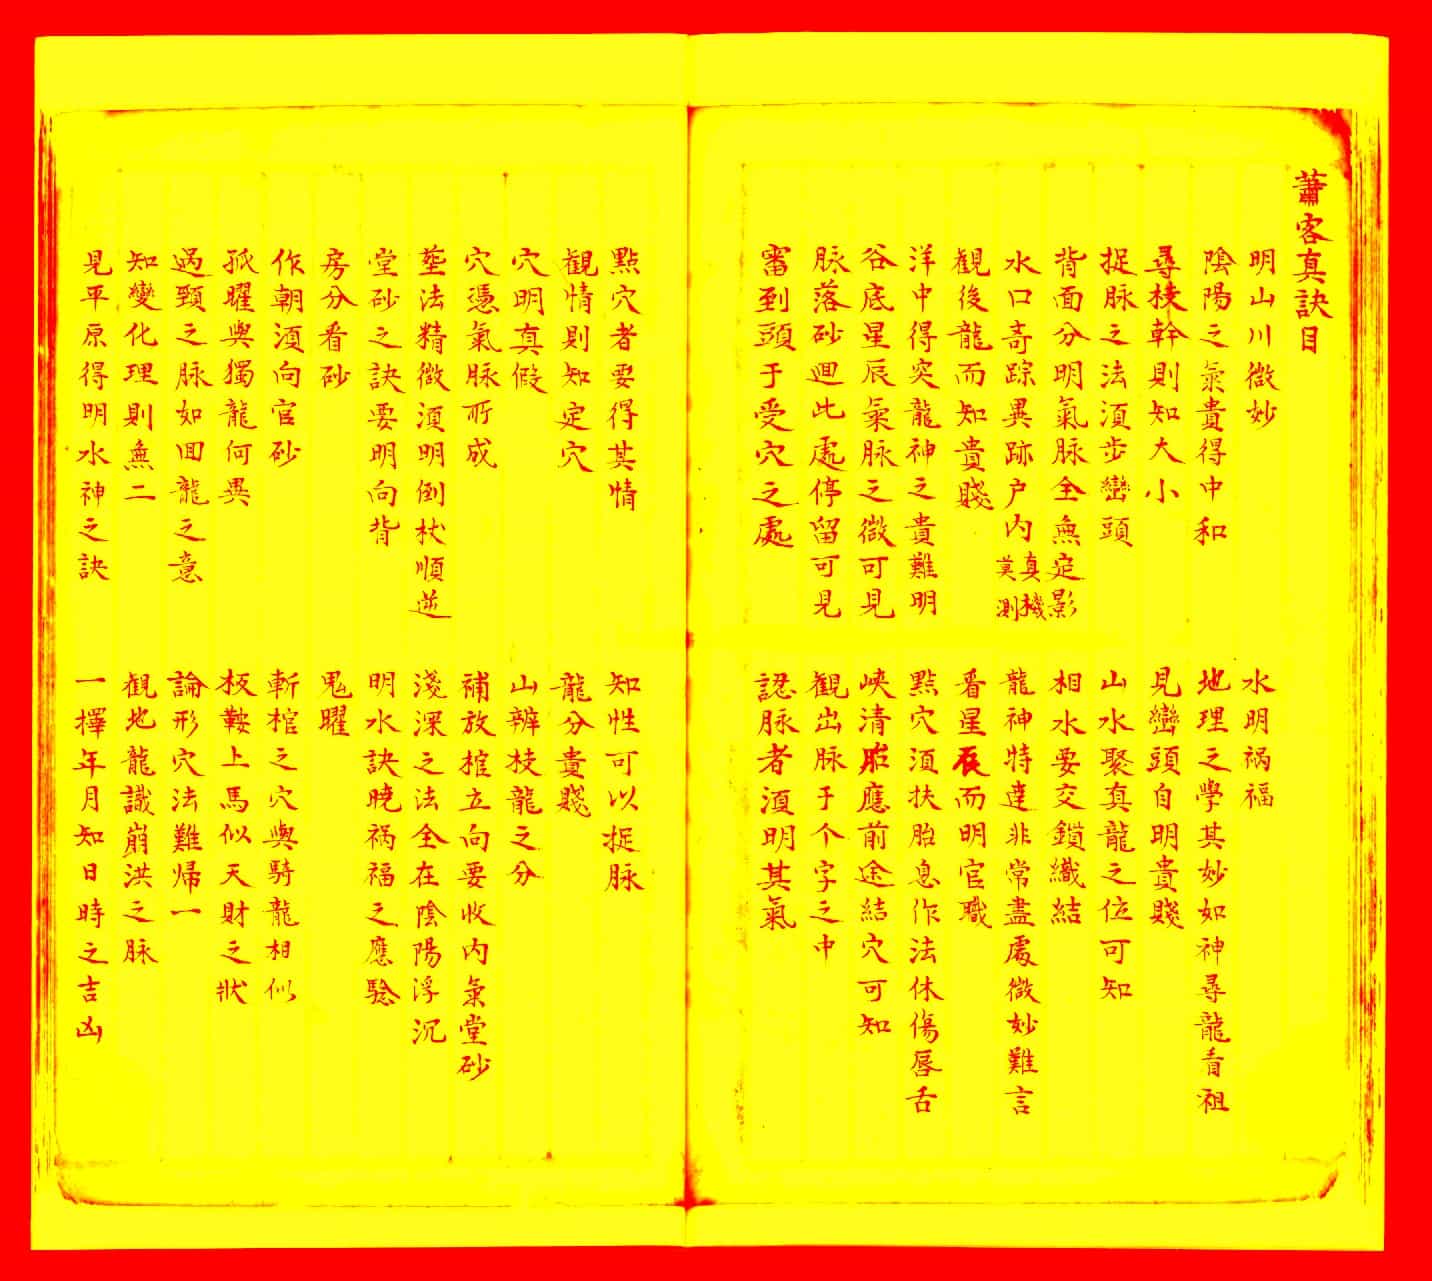 蕭客真訣目
明山川微妙
水明禍福
陰陽之氣貴得中和
地理之學其妙如神尋龍看祖
尋枝幹則知大小
見巒頭自明貴賤
捉脉之法須步巒頭
山水聚真龍之位可知
背面分明氣脉全無定影
相水要交鎖織結
水口奇踪異跡户内真機莫測
龍神特達非常盡處微妙難言
観後龍而知貴賤
看星辰而明官職
洋中得突龍神之貴難明
點穴須扶胎息作法休傷唇舌
谷底星辰氣脉之微可見
峽清脉應前途結穴可知
脉落砂迴此處停留可見
観出脉于个字之中
審到頭于受穴之處
認脉者須明其氣
點穴者要得其情
知性可以捉脉
観情則知定穴
龍分貴賤
穴明真假
山辨枝龍之分
穴憑氣脉所成
補放棺立向要收内氣堂砂
塟法精微須明倒杖順逆
淺深之法全在陰陽浮沉
堂砂之訣要明向背
明水訣曉禍福之應驗
房分看砂
鬼曜
作朝須向官砂
斬棺之穴與騎龍相似
孤曜與獨龍何異
板鞍上馬似天財之狀
過頸之脉如回龍之意
論形穴法難歸一
知變化理則無二
観地龍識崩洪之脉
見平原得明水神之訣
一擇年月知日時之吉凶